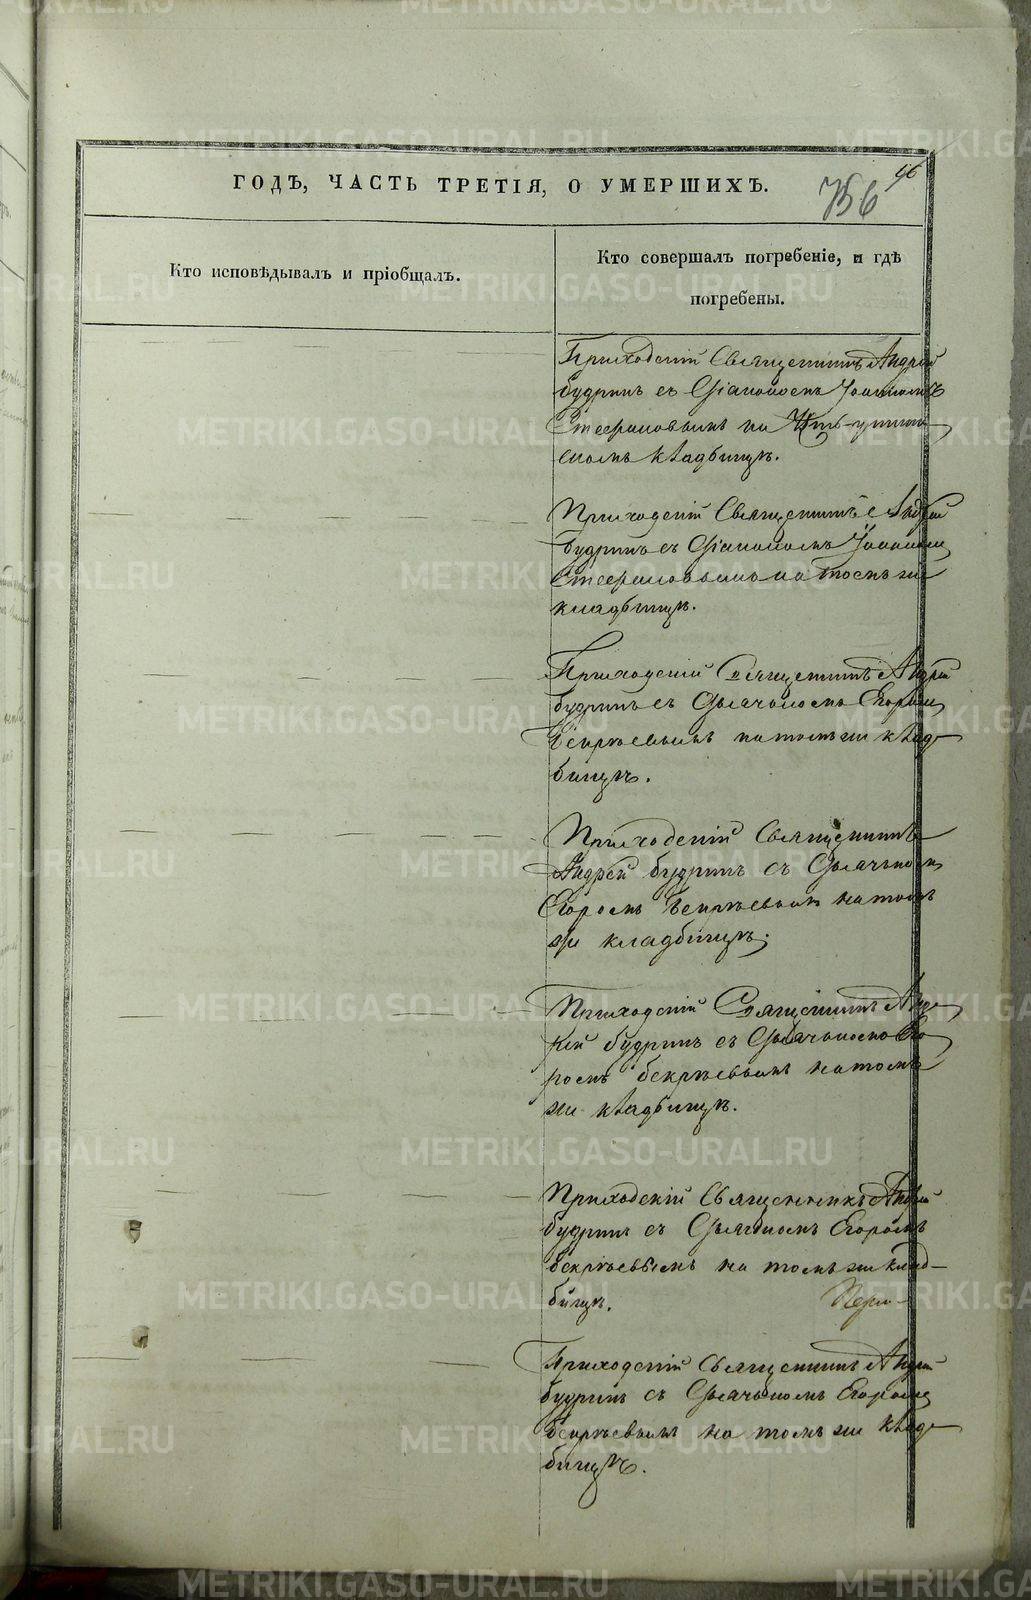 46
756
ГОДѢ, ЧАСТЬ ТРЕТІЯ, О УМЕРШИХЪ.
Кто исповѣдывалъ и пріобщалъ.
Кто совершалъ погребеніе, и гдѣ
погребены.
Приходскій Священникъ Андрей
Будринъ съ Діакономъ Іоанномъ
на
скомъ кладбищѣ.
Приходскій Священникъ Андрей
Будринъ съ Діакономъ Іоанномъ
на томъ же
кладбищѣ.
Приходскій Священникъ Андрей
Будринъ съ Дьячкомъ Егоромъ
Бекрѣевымъ на томъ же клад-
бищѣ.
Приходскій Священникъ
Андрей Будринъ съ Дьячкомъ
Егоромъ Бекрѣевымъ на томъ
же кладбищѣ.
Приходскій Священникъ Анд-
рей Будринъ съ Дьячкомъ Его-
ромъ Бекрѣевымъ на томъ
же кладбищѣ.
Приходскій Священникъ Андрей
Будринъ съ Дьячкомъ Егоромъ
Бекрѣевымъ на томъ же клад-
бищѣ.
Приходскій Священникъ Андрей
Будринъ съ Дьячкомъ Егоромъ
Бекрѣевымъ на томъ же клад-
бищѣ.
METRIKI.GASO-URAL.RU